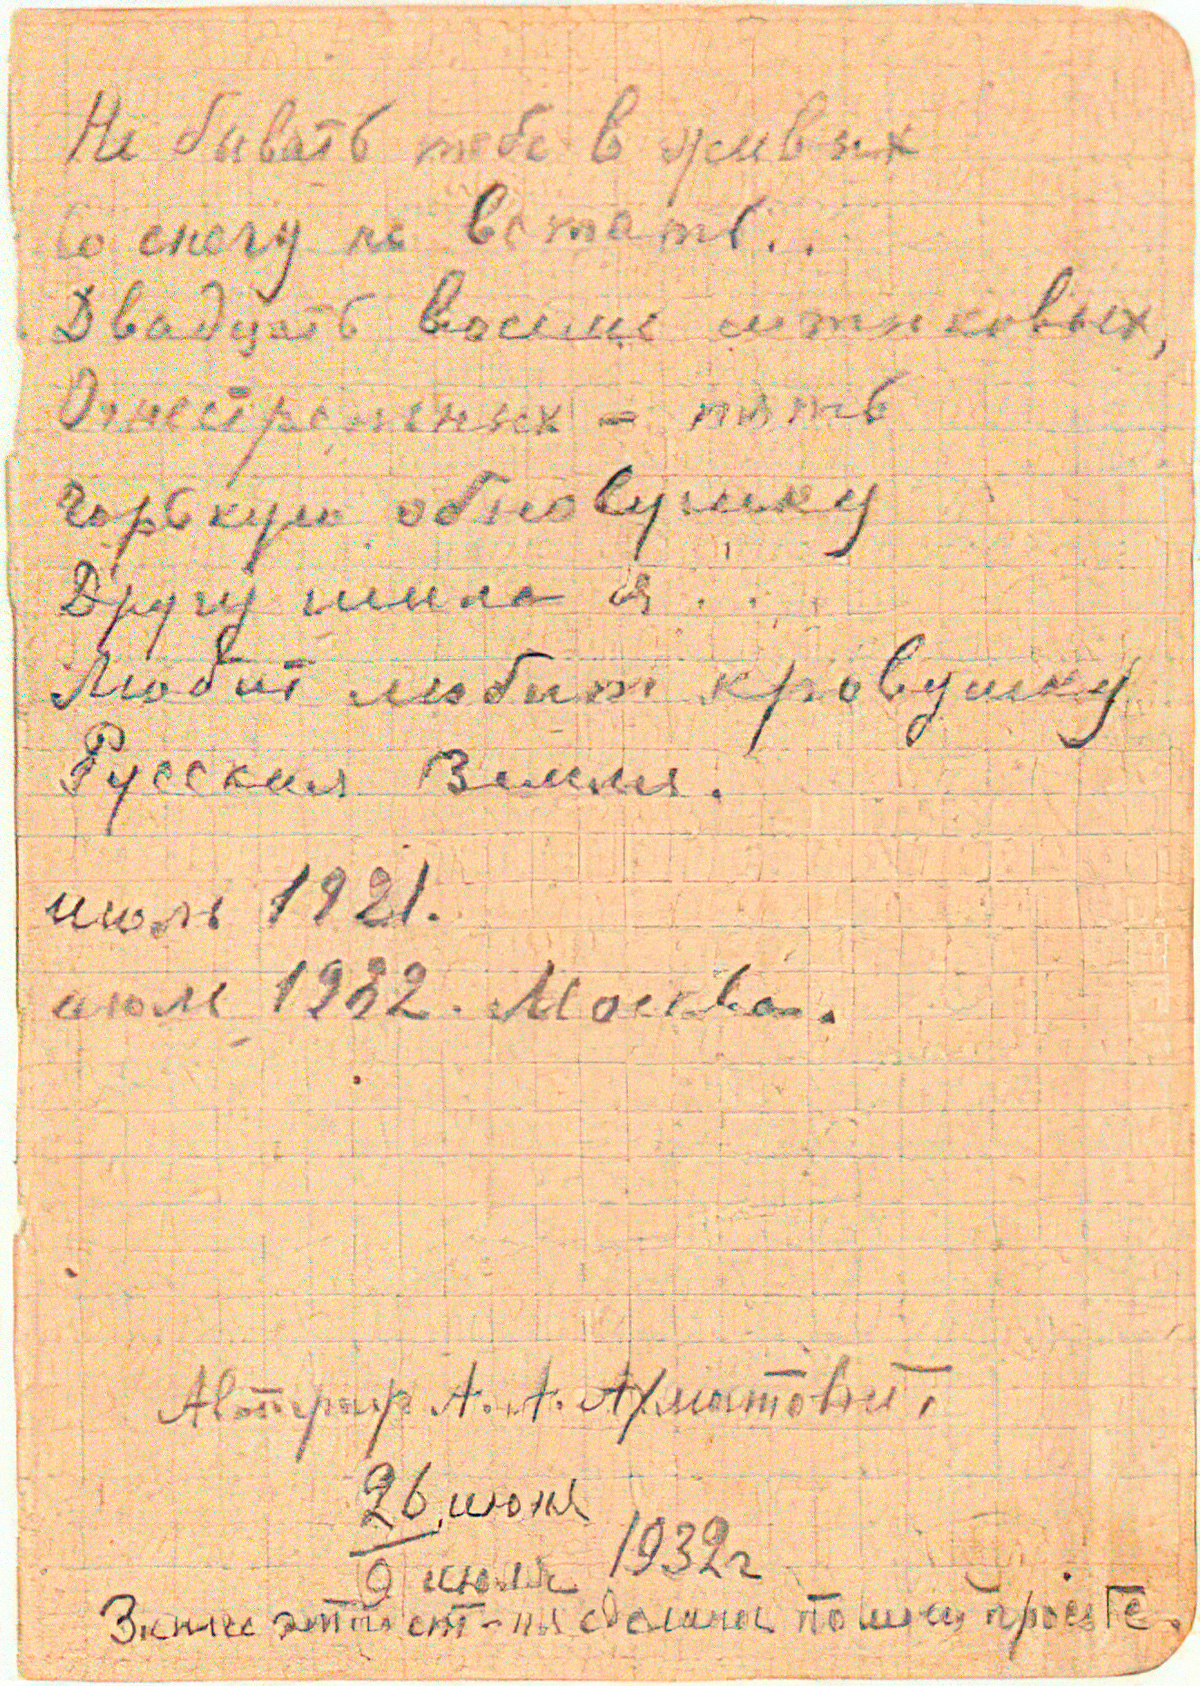 Не бывать тебе в живых
Со снегу не встать...
Двадцать восемь штыковых,
Огнестрельных - пять
Горькую обновушку
Другу шила я...
Любит любит кровушку
Русская Земля.
июль 1921.
июль 1932. Москва.
Автограф А. А. Ахматовой,
26 июня
9 июля 1932г
Запись этого ст-ия сделана по моей просьбе.